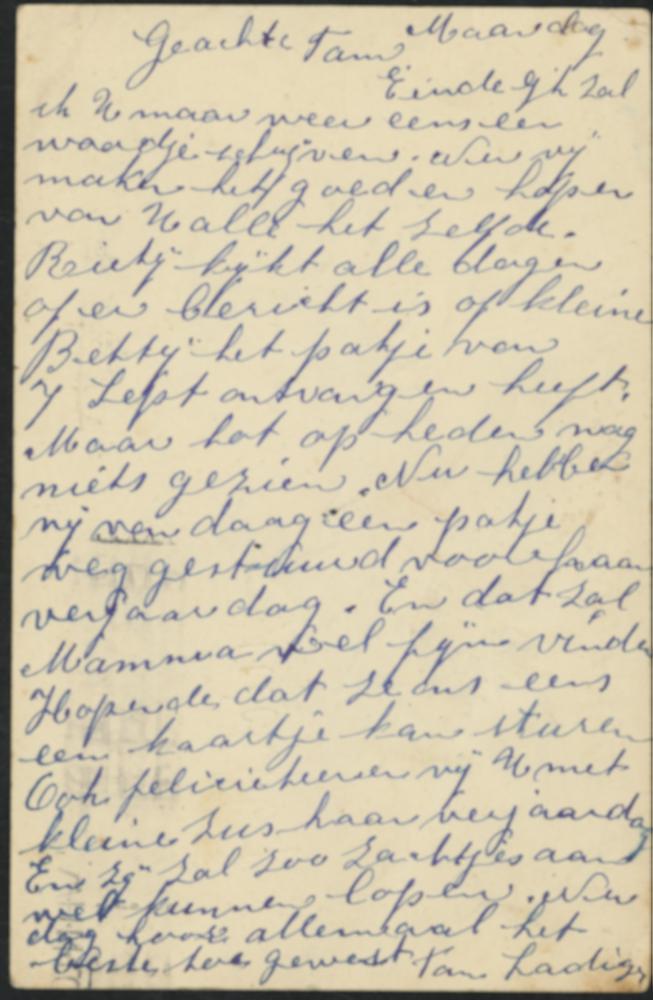 Geachte Fam Maandag
Eindelijk zal
ik U maar weer eens een
woordje schrijven. Nu wij
maken het goed en hopen
van U alle het zelfde.
Rietij kijkt alle dagen
of er bericht is of kleine
Bettij het pakje van
7 Sept ontvangen heeft.
Maar tot op heden nog
niets gezien. Nu hebben
wij van daag een pakje
weg gestuurd voor haar
verjaardag. En dat zal
Mamma wel fijn vinden
Hopende dat ze ons eens
een kaartje kan sturen
Ook feliciteeren wij U met
kleine Zus haar verjaardag
En zij zal zoo zachtjes aan
wel kunnen lopen. Nu
dag hoor allemaal het
beste toe gewenst Fam